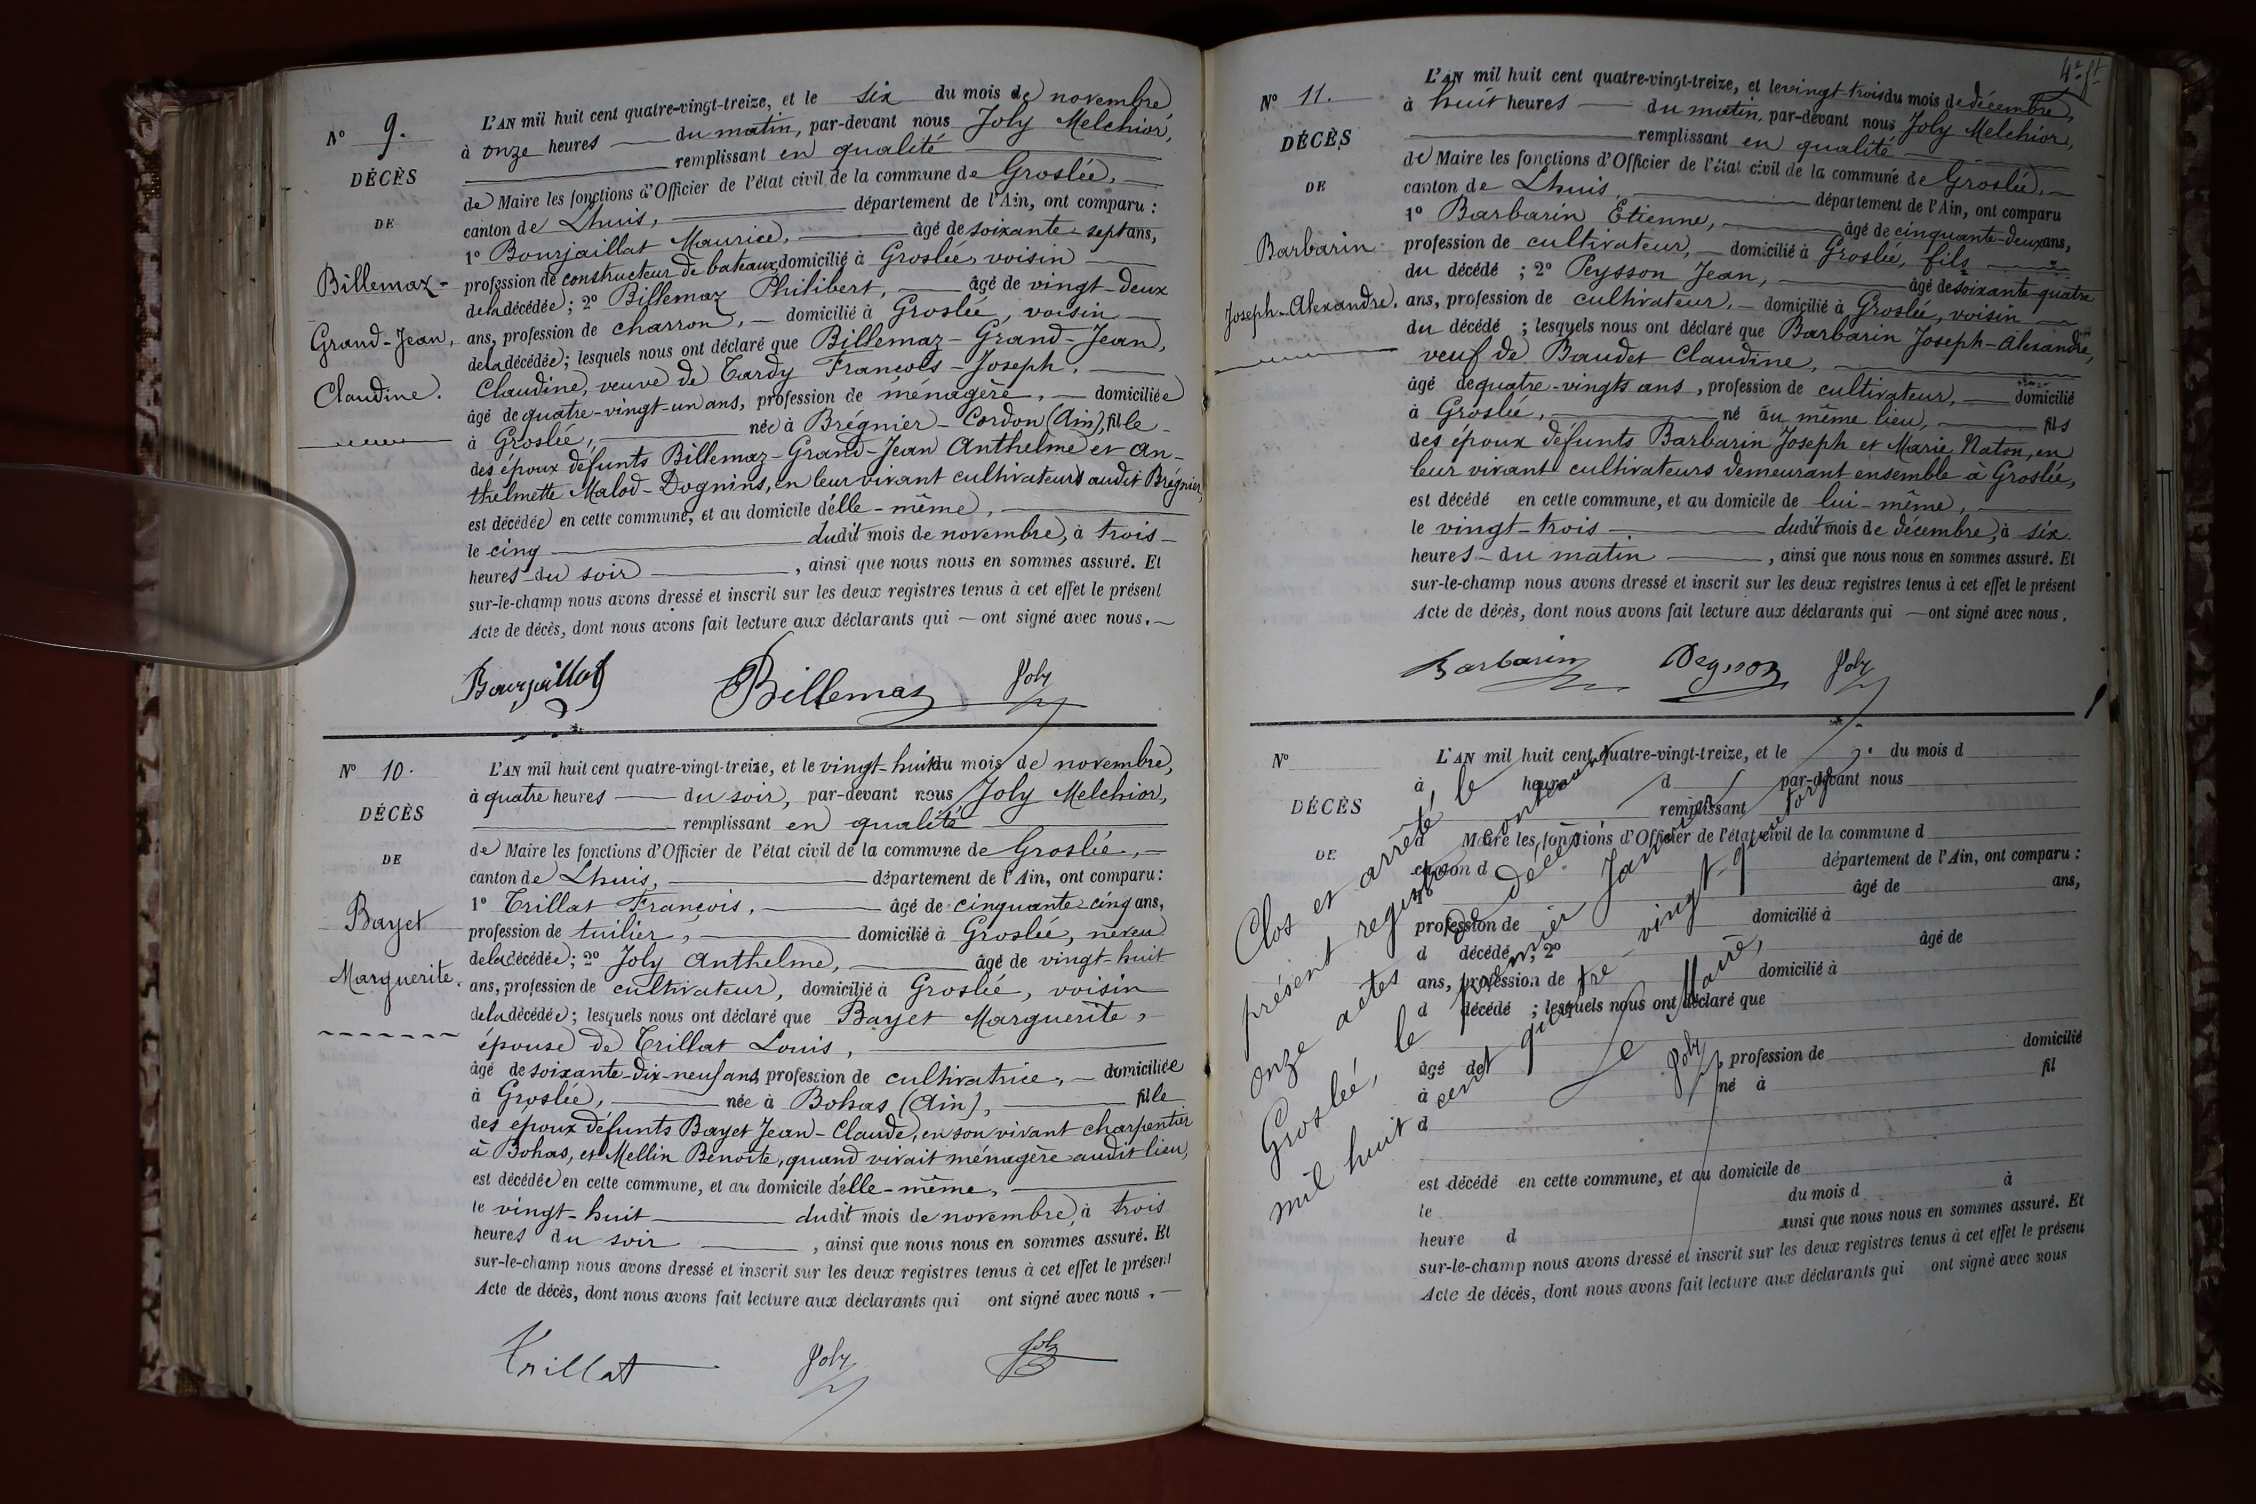 N° 9.
DÉCÈS
DE
Billemaz-
Grand-Jean,
Claudine.
L'AN mil huit cent quatre-vingt-treize, et le six du mois de novembre
à onze heures du matin, par-devant nous Joly Melchior,
remplissant en qualité
de Maire les fonctions d'Officier de l'état civil de la commune de Groslée,
canton de Lhuis, département de l'Ain, ont comparu :
1° Bourjaillat Maurice, âgé de soixante-sept ans,
profession de constructeur de bateaux, domicilié à Groslée, voisin
de la décédée ; 2° Billemaz Philibert, âgé de vingt-deux
ans, profession de charron, domicilié à Groslée, voisin
de la décédée ; lesquels nous ont déclaré que Billemaz-Grand-Jean,
Claudine, veuve de Tardy François-Joseph,
âgé de quatre-vingt-un ans, profession de ménagère, domiciliée
à Groslée, née à Brégnier-Cordon (Ain), fille
des époux défunts Billemaz-Grand-Jean Anthelme et An-
thelmette Malod-Dognins, en leur vivant cultivateurs audit Brégnier,
est décédée en cette commune, et au domicile d'elle-même,
le cinq dudit mois de novembre, à trois
heures du soir, ainsi que nous nous en sommes assuré. Et
sur-le-champ nous avons dressé et inscrit sur les deux registres tenus à cet effet le présent
Acte de décès, dont nous avons fait lecture aux déclarants qui ont signé avec nous.
Bourjaillat Billemaz Joly
N° 10.
DÉCÈS
DE
Bayet
Marguerite.
L'AN mil huit cent quatre-vingt-treize, et le vingt-huit du mois de novembre,
à quatre heures du soir, par-devant nous Joly Melchior,
remplissant en qualité
de Maire les fonctions d'Officier de l'état civil de la commune de Groslée,
canton de Lhuis, département de l'Ain, ont comparu :
1° Trillat François, âgé de cinquante-cinq ans,
profession de tuilier, domicilié à Groslée, neveu
de la décédée ; 2° Joly Anthelme, âgé de vingt-huit
ans, profession de cultivateur, domicilié à Groslée, voisin
de la décédée ; lesquels nous ont déclaré que Bayet Marguerite,
épouse de Trillat Louis,
âgé de soixante-dix-neuf ans, profession de cultivatrice, domiciliée
à Groslée, née à Bohas (Ain), fille
des époux défunts Bayet Jean-Claude, en son vivant charpentier
à Bohas, et Mellin Benoite, quand vivait ménagère audit lieu,
est décédée en cette commune, et au domicile d'elle-même,
le vingt-huit dudit mois de novembre, à trois
heures du soir, ainsi que nous nous en sommes assuré. Et
sur-le-champ nous avons dressé et inscrit sur les deux registres tenus à cet effet le présent
Acte de décès, dont nous avons fait lecture aux déclarants qui ont signé avec nous.
Trillat Joly Joly
N° 11.
DÉCÈS
DE
Barbarin
Joseph-Alexandre.
L'AN mil huit cent quatre-vingt-treize, et le vingt-trois du mois de décembre,
à huit heures du matin, par-devant nous Joly Melchior,
remplissant en qualité
de Maire les fonctions d'Officier de l'état civil de la commune de Groslée,
canton de Lhuis, département de l'Ain, ont comparu
1° Barbarin Etienne, âgé de cinquante-deux ans,
profession de cultivateur, domicilié à Groslée, fils
du décédé ; 2° Peysson Jean, âgé de soixante-quatre
ans, profession de cultivateur, domicilié à Groslée, voisin
du décédé ; lesquels nous ont déclaré que Barbarin Joseph-Alexandre,
veuf de Baudet Claudine,
âgé de quatre-vingts ans, profession de cultivateur, domicilié
à Groslée, né au même lieu, fils
des époux défunts Barbarin Joseph et Marie Naton, en
leur vivant cultivateurs demeurant ensemble à Groslée,
est décédé en cette commune, et au domicile de lui-même,
le vingt-trois dudit mois de décembre, à six
heures du matin, ainsi que nous nous en sommes assuré. Et
sur-le-champ nous avons dressé et inscrit sur les deux registres tenus à cet effet le présent
Acte de décès, dont nous avons fait lecture aux déclarants qui ont signé avec nous.
Barbarin Peysson Joly
N°
DÉCÈS
DE
L'AN mil huit cent quatre-vingt-treize, et le du mois d
à heure d par-devant nous
remplissant
d Maire les fonctions d'Officier de l'état civil de la commune d
canton d département de l'Ain, ont comparu :
1° âgé de ans,
profession de domicilié à
d décédé ; 2° âgé de
ans, profession de domicilié à
d décédé ; lesquels nous ont déclaré que
âgé de profession de domicilié
à né à fil
d
est décédé en cette commune, et au domicile de
le du mois d à
heure d ainsi que nous nous en sommes assuré. Et
sur-le-champ nous avons dressé et inscrit sur les deux registres tenus à cet effet le présent
Acte de décès, dont nous avons fait lecture aux déclarants qui ont signé avec nous
Clos et arrêté, le
présent registre contenant
onze actes de décès.
Groslée, le premier Janvier
mil huit cent quatre-vingt-quatorze.
Le Maire,
Joly